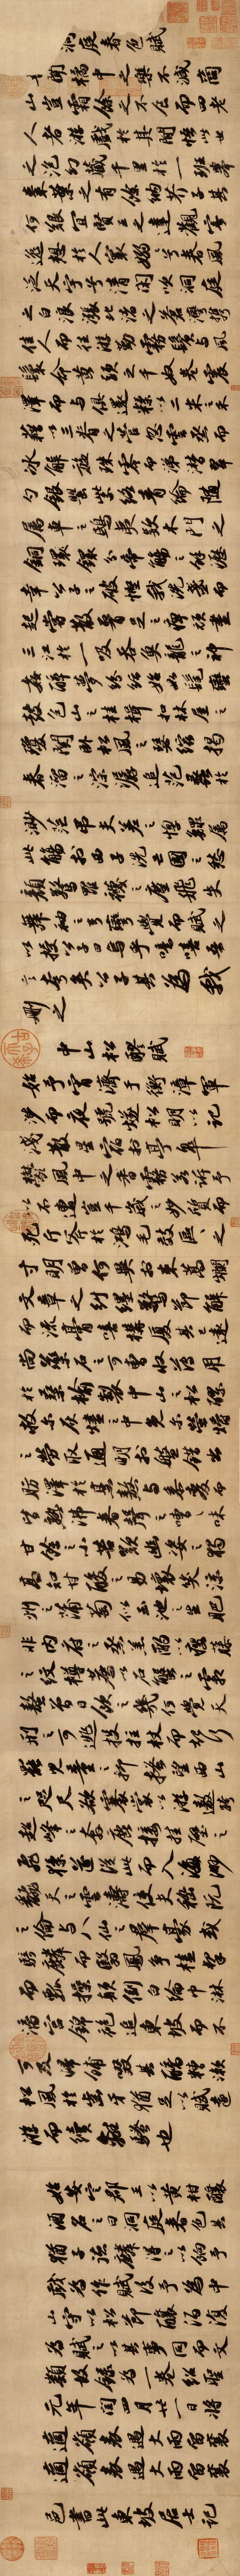 洞庭春色賦
吾聞橘中之樂不減商
山豈霜餘之不食而四老
人者游戲於其間悟此世
之泡幻藏千里於一班舉
棗葉之有餘納芥子其
何艱宜賢王之達觀寄
逸想於人寰嫋嫋兮春風
泛天宇兮清閑吹洞庭
之白浪漲北渚之蒼灣攜
佳人而往游勒霧鬢與風
鬟命黃頭之千奴卷震
澤而與俱還糅以二米之禾
藉以三脊之菅忽雲烝而
冰解旋珠零而涕潸翠
勺銀罌紫絡青綸隨
屬車之鴟夷款木門之
銅鐶分帝觴之餘瀝
幸公子之破慳我洗盞而
起嘗散腰足之痺頑盡
三江於一吸吞魚龍之神
姦醉夢紛紜始如髦蠻
鼓包山之桂楫扣林屋之
瓊關臥松風之瑟縮揭
春溜之淙潺追范蠡於
渺茫弔夫差之惸鰥屬
此觴於西子洗亡國之愁
顏驚羅襪之塵飛失
舞袖之弓彎覺而賦之
以授公子曰烏乎噫嘻吾
言夸矣公子其為我
刪之
中山松醪賦
始予宵濟于衡漳軍
涉而夜號燧松明以記
淺散星宿於亭皋
鬱風中之香霧若訴予
以不遭豈千歲之妙質而
死斤斧於鴻毛效區區之
寸明曾何異於束蒿爛
文章之糾纏驚節解
而流膏嘻構廈其已遠
尚藥石之可曹收薄用
於桑榆製中山之松醪
救爾灰燼之中免爾螢爝
之勞取通明於盤錯出
肪澤於烹熬與黍麥而
皆熟沸春聲之嘈嘈味
甘餘之小苦歎幽姿之獨
高知甘酸之易壞笑涼
州之蒲萄似玉池之生肥
非內府之蒸羔酌以癭藤
之紋樽薦以石蟹之霜
螯曾日飲之幾何覺天
刑之可逃投拄杖而起行
罷兒童之抑搔望西山
之咫尺欲褰裳以游遨跨
超峰之奔鹿接挂壁之
飛猱遂從此而入海渺
翻天之雲濤使夫嵇阮
之倫與八仙之群豪或
騎麟而翳鳳爭榼挈
而瓢操顛倒白綸巾淋
漓宮錦袍追東坡而不
可及歸餔歠其醨糟漱
松風於齒牙猶足以賦遠
游而續離騷也
始安定郡王以黃柑釀
酒名之曰洞庭春色其
猶子德麟得之以餉予
戲為作賦後予為中
山守以松節釀酒復
為賦之以其事同而文
類故錄為一卷紹聖
元年閏四月廿一日將
適嶺表遇大雨留襄
適嶺表遇大雨留襄
邑書此東坡居士記